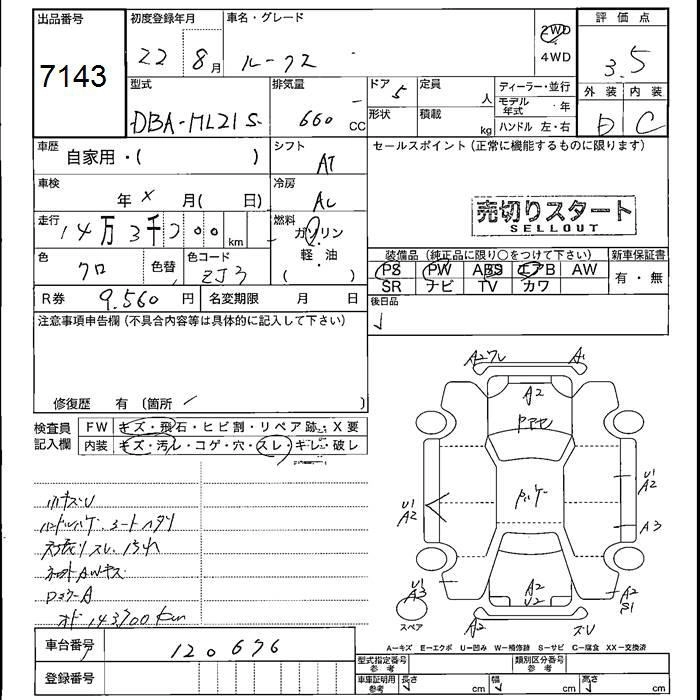 出品番号 初度登録年月 車名・グレード 評価点
7143 22 8月 ルークス 2WD 4WD 3.5
外装 内装
D C
型式 排気量 ドア 定員 ディーラー・並行
DBA-ML21S 660 CC 5 人 モデル年式 ・ 年
形状 積載 kg ハンドル 左・右
車歴 自家用・( ) シフト AT
セールスポイント(正常に機能するものに限ります)
車検 年 X 月( 日) 冷房 AC
売切りスタート
SELLOUT
走行 14万3千700km 燃料 ガソリン・軽・油( )
装備品(純正品に限り○をつけて下さい) 新車保証書
色 クロ 色替 色コード ZJ3
PS PW ABS エアB AW 有・無
SR ナビ TV カワ
R券 9,560円 名変期限 月 日
後日品
注意事項申告欄(不具合内容等は具体的に記入して下さい)
修復歴 有 (箇所 )
検査員記入欄 FW キズ・飛石・ヒビ割・リペア跡・X要
内装 キズ・汚レ・コゲ・穴・スレ・キレ・破レ
A2 A2
U1 A2
U1 A2
A3
U1 A3
A2 U2
A2 S1
スペア
オド 143700km
A−キズ E−エクボ U−凹み W−補修跡 S−サビ C−腐食 XX−交換済
車台番号 120676
型式指定番号 参考 類別区分番号 参考
登録番号
車庫証明用 参考 長さ cm 幅 cm 高さ cm